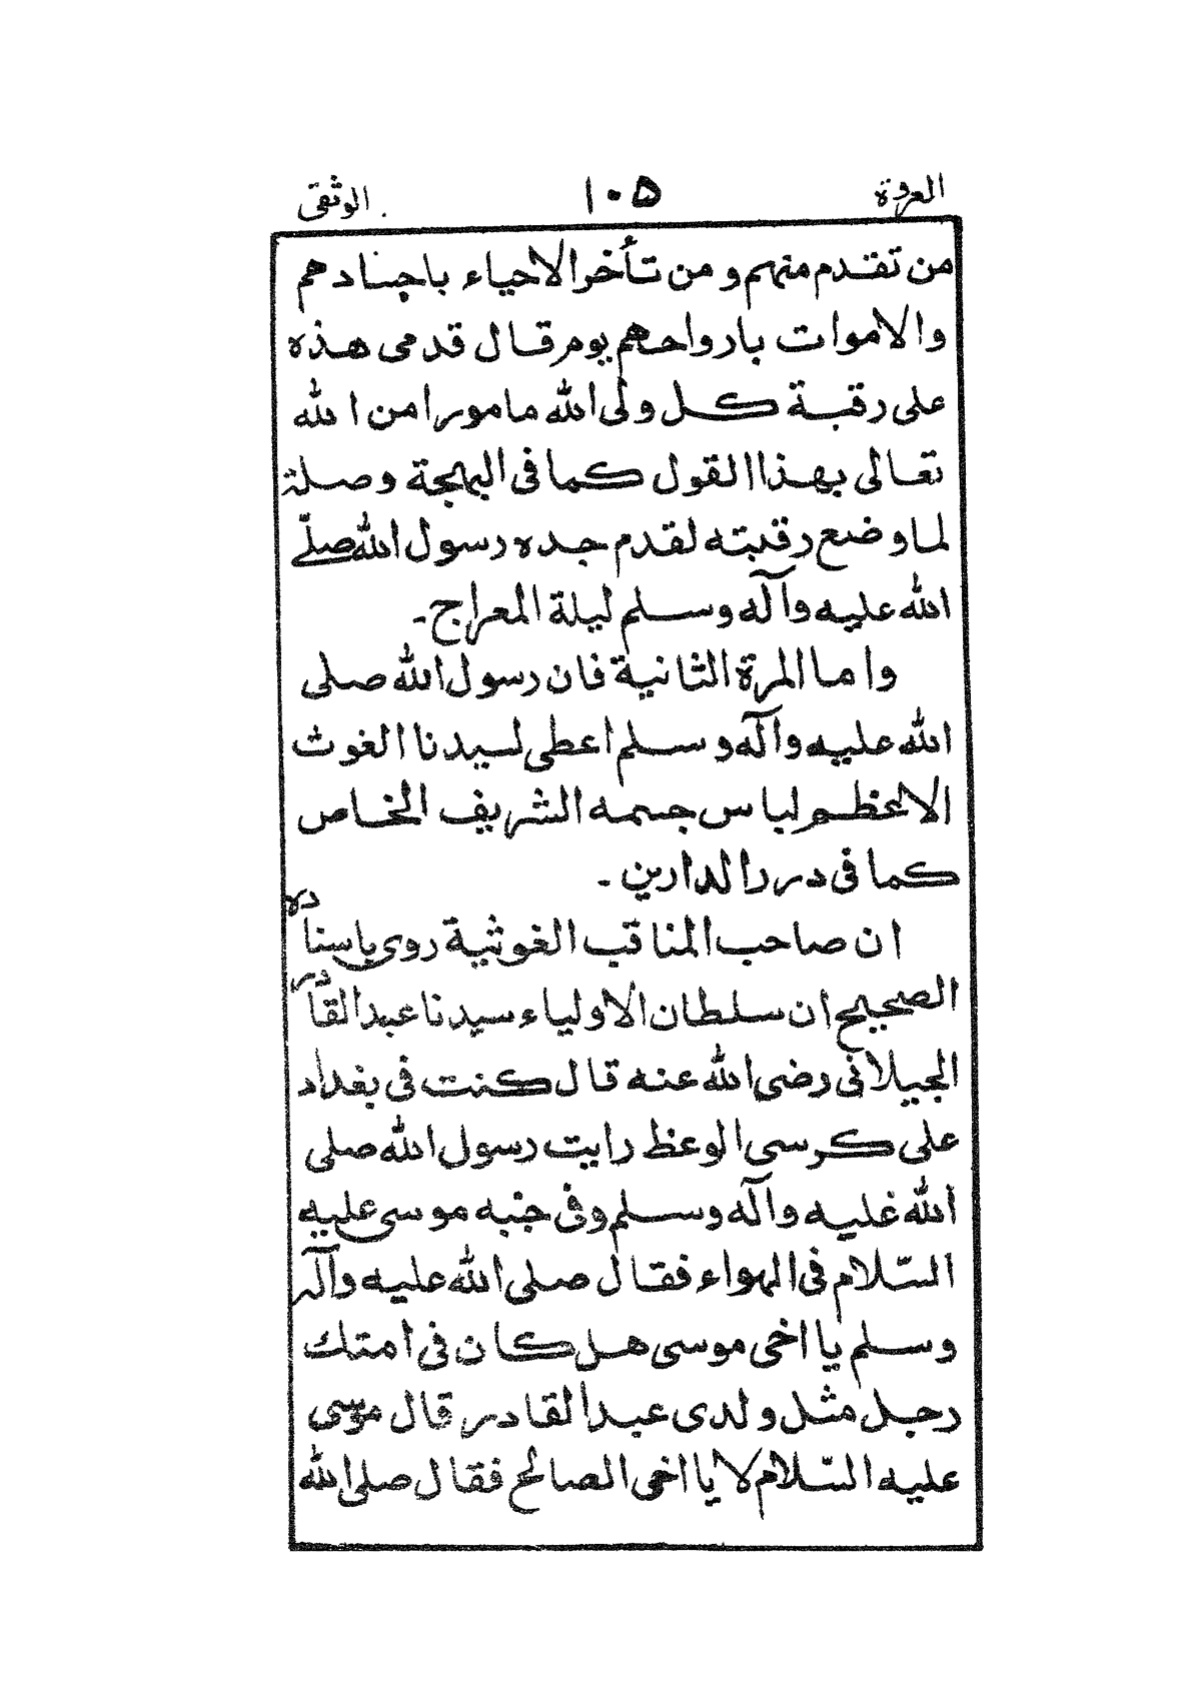 العروة ١٠٥ الوثقى
من تقدم منهم و من تأخر الاحياء باجسادهم
والاموات بارواحهم يوم قال قدمى هذه
على رقبة كل ولى الله مامورا من الله
تعالى بهذا القول كما فى البهجة وصلة
لما وضع رقبته لقدم جده رسول الله صلّے
الله عليه وآله وسلم ليلة المعراج۔
واما المرة الثانية فان رسول الله صلى
الله عليه وآله وسلم اعطى لسيدنا الغوث
الاعظم لباس جسمه الشريف الخاص
كما فى درر الدارين ۔
ان صاحب المناقب الغوثية روى باسناده
الصحيح ان سلطان الاولياء سيدنا عبد القادر
الجيلانى رضى الله عنه قال كنت فى بغداد
على كرسى الوعظ رايت رسول الله صلى
الله عليه وآله وسلم وفى جنبه موسى عليه
السّلام فى الهواء فقال صلى الله عليه وآله
وسلم يا اخى موسى هل كان فى امتك
رجل مثل ولدى عبد القادر قال موسى
عليه السّلام لا يا اخى الصالح فقال صلى الله